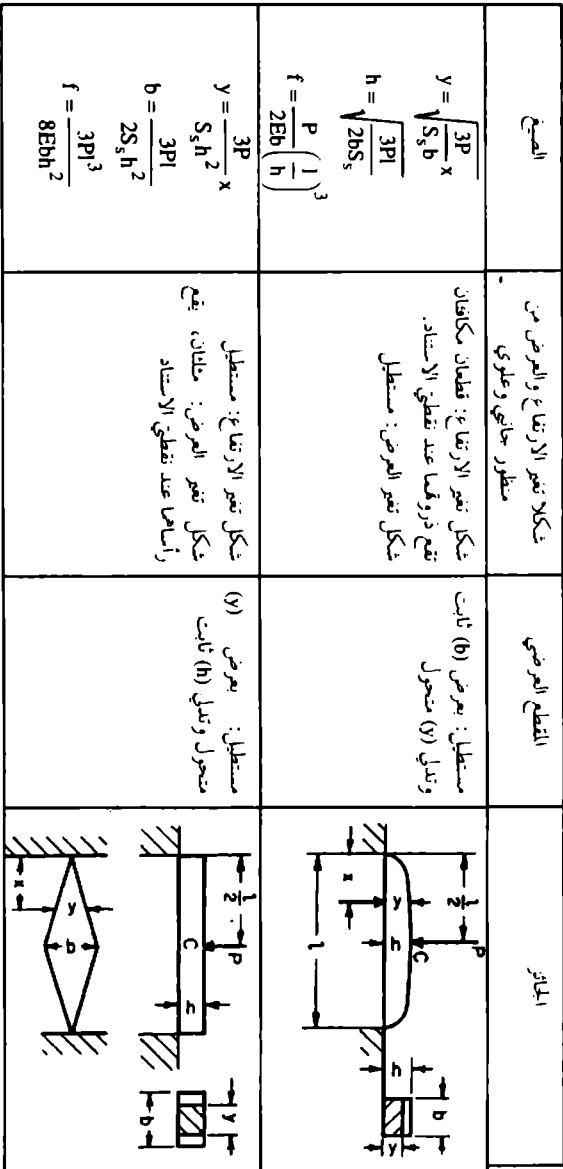 الجائز
المقطع العرضي
شكلا تغير الارتفاع والعرض من
منظور جانبي وعلوي
الصيغ
P
l/2
C
x
y
h
l
h
b
y
مستطيل: بعرض (b) ثابت
وتدلي (y) متحول
شكل تغير الارتفاع: قطعان مكافئان
تقع ذروتهما عند نقطتي الاستناد.
شكل تغير العرض: مستطيل
y = √(3P/(S_s b) x)
h = √(3Pl/(2bS_s))
f = P/(2Eb) (l/h)^3
P
l/2
C
h
y
b
x
y
b
مستطيل: بعرض (y)
متحول وتدلي (h) ثابت
شكل تغير الارتفاع: مستطيل
شكل تغير العرض: مثلثان، يقع
رأساهما عند نقطتي الاستناد
y = 3P/(S_s h^2) x
b = 3Pl/(2S_s h^2)
f = 3Pl^3/(8Ebh^2)